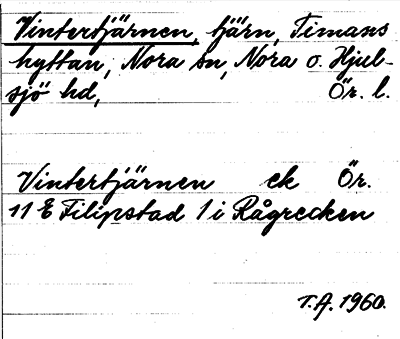 Vintertjärnen, tjärn, Timans
hyttan, Nora sn, Nora o. Hjul-
sjö hd, Ör. l.
Vintertjärnen ek Ör.
11 E Filipstad 1 i Rågrecken
T.A. 1960.